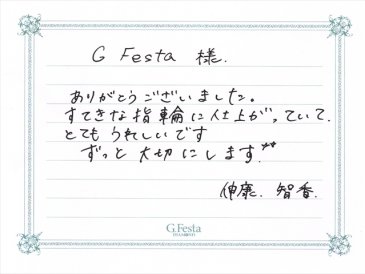 G Festa 様.
ありがとうございました。
すてきな指輪に仕上がっていて.
とても うれしいです
ずっと 大切にします
伸康. 智香.
G.Festa